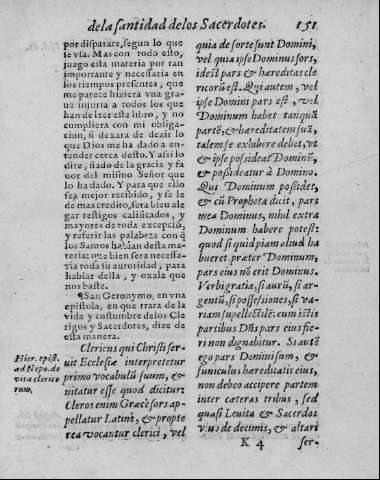 de la santidad de los Sacerdotes. 151
por disparate, segun lo que
se vía. Mas con todo esto,
juzgo esta materia por tan
importante y necessaria en
los tiempos presentes, que
me parece hiziera vna gra-
ue injuria a todos los que
han de leer este libro, y no
cumpliera con mi obliga-
cion, si dexara de dezir lo
que Dios me ha dado a en-
tender cerca desto. Y assi lo
dire, fiado de la gracia y fa
uor del mismo Señor que
lo ha dado. Y para que ello
sea mejor recibido, y se le
de mas credito, sera bien ale
gar testigos calificados, y
mayores de toda excepciõ,
y referir las palabras con q̃
los Santos hablan desta ma
teria: que bien sera necessa-
ria toda su autoridad, para
hablar della, y oxala que
nos baste.
¶San Geronymo, en vna
epistola, en que trata de la
vida y costumbre de los Cle
rigos y Sacerdotes, dize de
esta manera.
Clericus qui Christi ser-
uit Ecclesiæ interpretetur
primo vocabulũ suum, &
nitatur esse quod dicitur:
Cleros enim Græcè sors ap-
pellatur Latinè, & propte
rea vocantur clerici, vel
Hier. epist.
ad Nepo. de
vita clerico
rum.
quia de sorte sunt Domini,
vel quia ipse Dominus sors,
idest pars & hæreditas cle
ricorũ est. Qui autem, vel
ipse Domini pars est, vel
Dominum habet tanquã
partẽ, & hæreditatem suã,
talem se exhibere debet, vt
& ipse possideat Dominũ,
& possideatur à Domino.
Qui Dominum possidet,
& cũ Propheta dicit, pars
mea Dominus, nihil extra
Dominum habere potest:
quod si quidpiam aliud ha
bueret præter Dominum,
pars eius nõ erit Dominus.
Verbi gratia, si aurũ, si ar-
gentũ, si possessiones, si va-
riam supellectilẽ: cum istis
partibus Dñs pars eius fie-
ri non dignabitur. Si autẽ
ego pars Domini sum, &
funiculus hæreditatis eius,
non debeo accipere partem
inter cæteras tribus, sed
quasi Leuita & Sacerdos
viuo de decimis, & altari
K 4 ser-